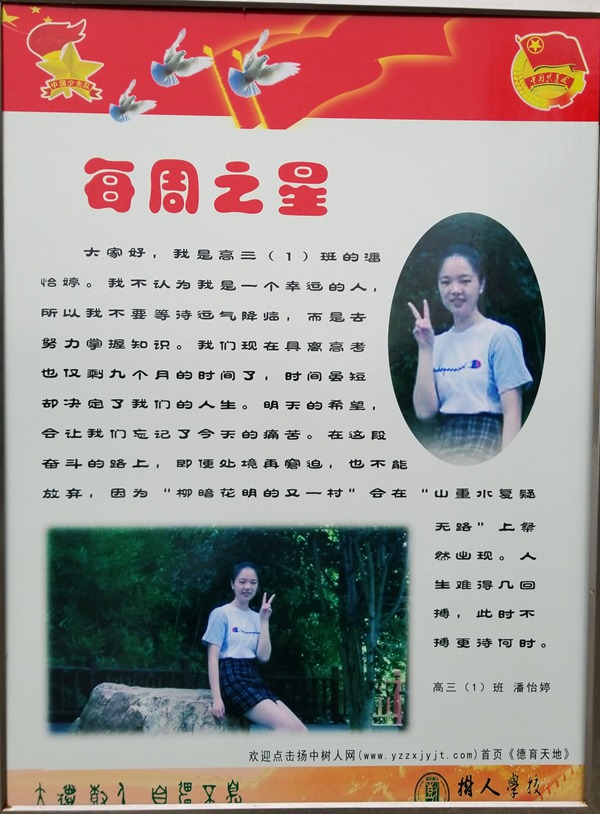 中国少先队
中国共青团
每周之星
大家好，我是高三（1）班的潘
怡婷。我不认为我是一个幸运的人，
所以我不要等待运气降临，而是去
努力掌握知识。我们现在具离高考
也仅剩九个月的时间了，时间虽短
却决定了我们的人生。明天的希望，
会让我们忘记了今天的痛苦。在这段
奋斗的路上，即便处境再窘迫，也不能
放弃，因为“柳暗花明的又一村”会在“山重水复疑
无路”上梁
然出现。人
生难得几回
搏，此时不
搏更待何时。
高三（1）班 潘怡婷
欢迎点击扬中树人网(www.yzzxjyjt.com)首页《德育天地》
树人学校